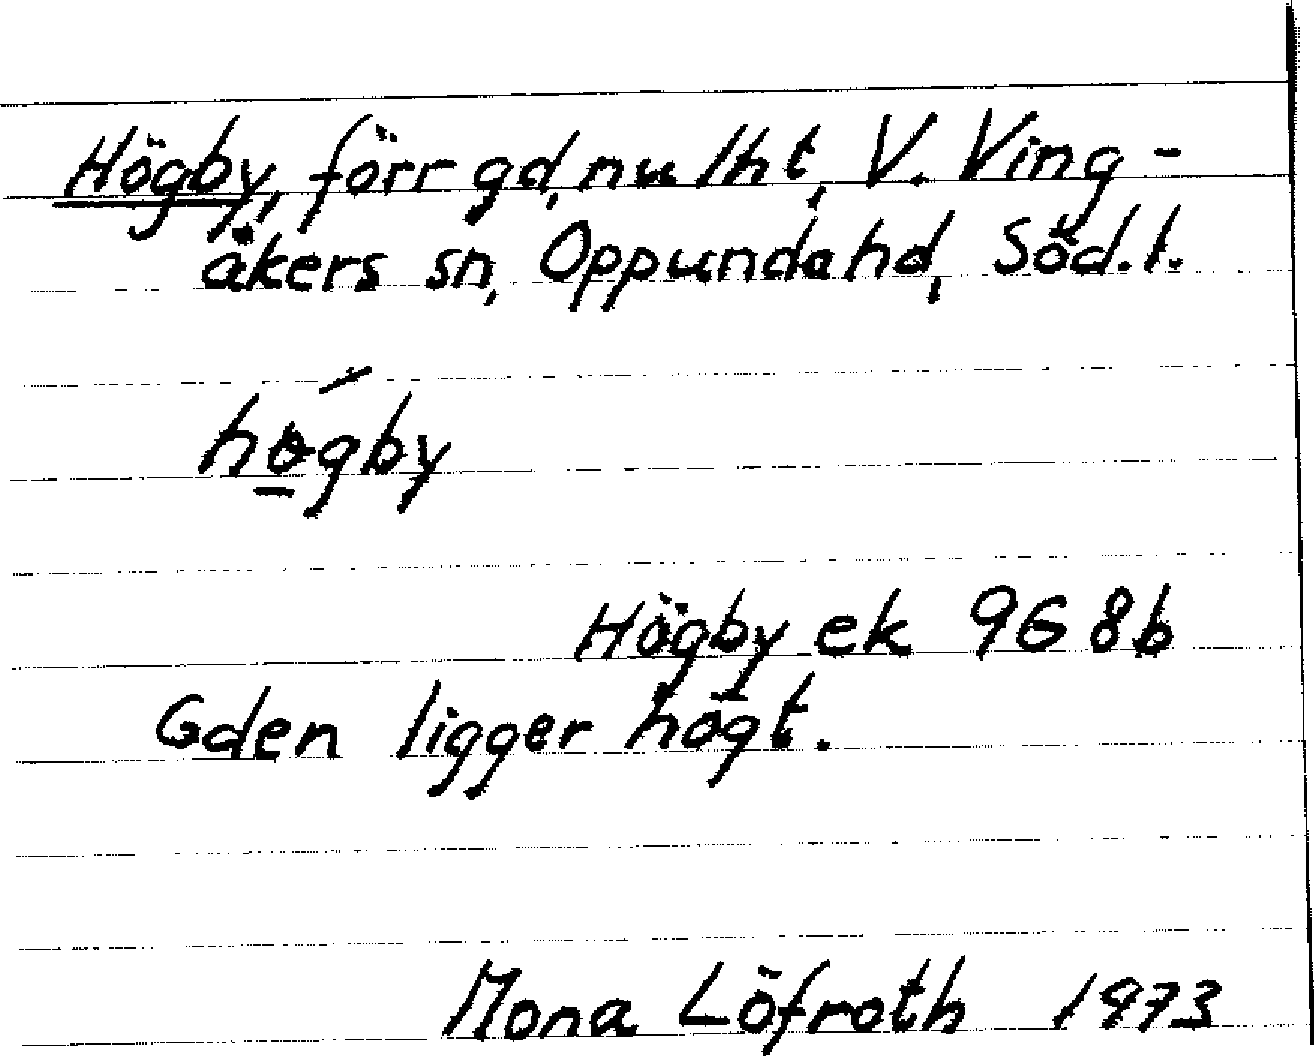 Högby, förr gd, nu lht, V. Ving-
åkers sn, Oppunda hd, Söd.l.
hǿ̱gby
Högby ek 9G 8b
Gden ligger högt.
Mona Löfroth 1973